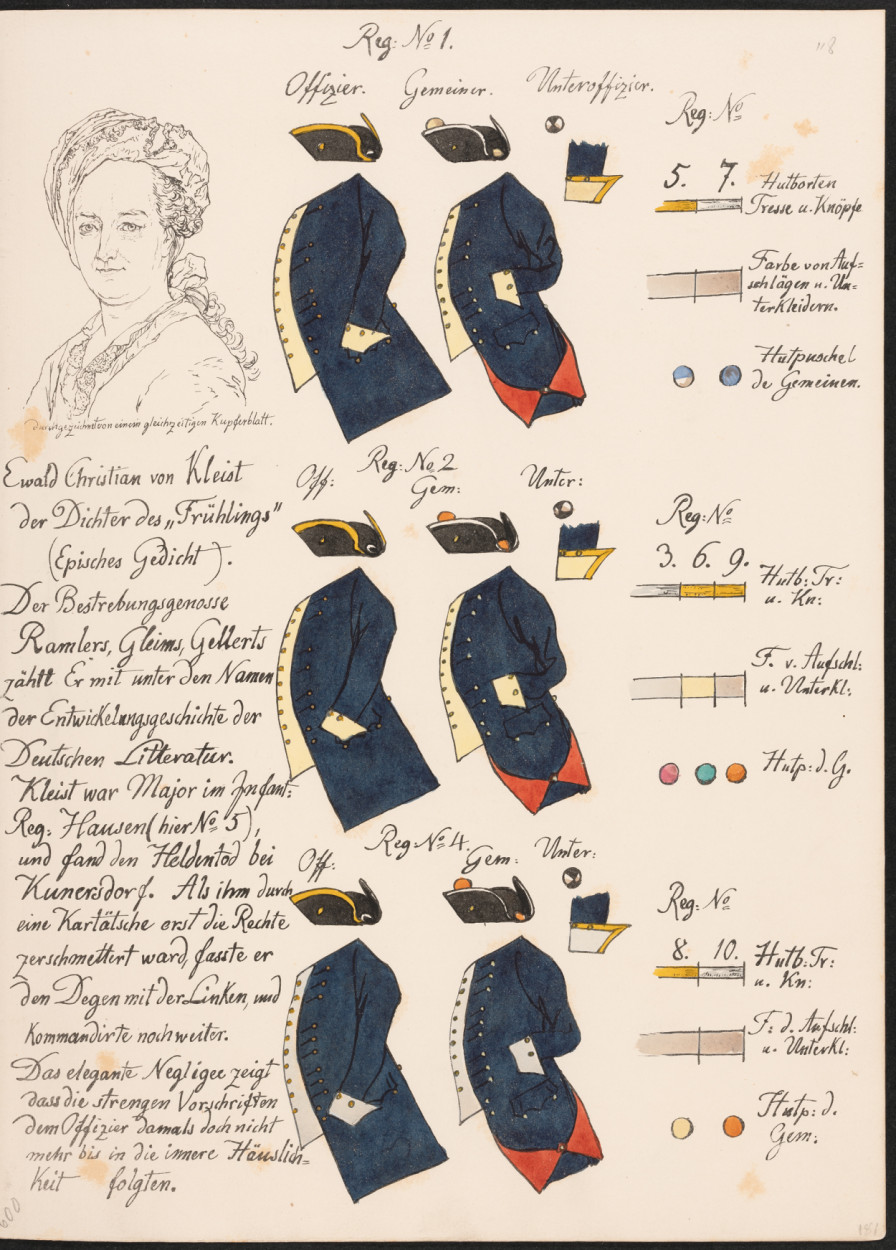 Reg: No 1.
Offizier. Gemeiner. Unteroffizier.
Reg: No
5. 7. Hutborten
Tresse u. Knöpfe
Farbe von Auf=
schlägen u. Un=
terkleidern.
Hutpuschel
de Gemeinen.
durchgezeichnet von einem gleichzeitigen Kupferblatt.
Ewald Christian von Kleist
der Dichter des „Frühlings"
(Episches Gedicht).
Der Bestrebungsgenosse
Ramlers, Gleims, Gellerts
zählt Er mit unter den Namen
der Entwickelungsgeschichte der
Deutschen Litteratur.
Kleist war Major im Infant:
Reg: Hausen (hier No 5),
und fand den Heldentod bei
Kunersdorf. Als ihm durch
eine Kartätsche erst die Rechte
zerschmettert ward, fasste er
den Degen mit der Linken, und
kommandirte noch weiter.
Das elegante Negligee zeigt
dass die strengen Vorschriften
dem Offizier damals doch nicht
mehr bis in die innere Häuslich=
keit folgten.
Reg: No 2
Off: Gem: Unter:
Reg: No
3. 6. 9. Hutb: Tr:
u. Kn:
F. v. Aufschl:
u. Unterkl:
Hutp: d. G.
Reg: No 4.
Off: Gem: Unter:
Reg: No
8. 10. Hutb: Tr:
u. Kn:
F: d. Aufschl:
u. Unterkl:
Hutp: d.
Gem: